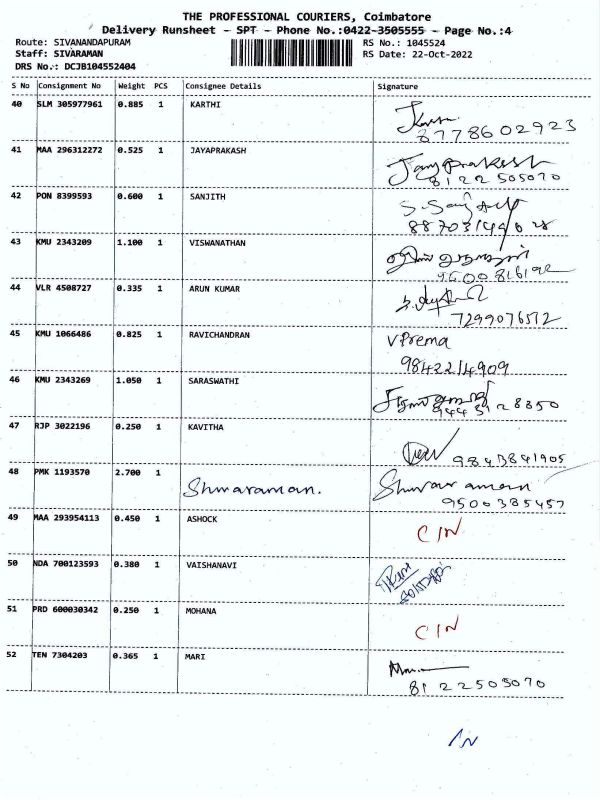 THE PROFESSIONAL COURIERS, Coimbatore
Delivery Runsheet - SPT - Phone No.:0422-3505555 - Page No.:4
Route: SIVANANDAPURAM RS No.: 1045524
Staff: SIVARAMAN RS Date: 22-Oct-2022
DRS No.: DCJB104552404
S No Consignment No Weight PCS Consignee Details Signature
40 SLM 305977961 0.885 1 KARTHI
8778602923
41 MAA 296312272 0.525 1 JAYAPRAKASH Jayaprakash
8122505070
42 PON 8399593 0.600 1 SANJITH
43 KMU 2343209 1.100 1 VISWANATHAN
9500816192
44 VLR 4508727 0.335 1 ARUN KUMAR
7299076512
45 KMU 1066486 0.825 1 RAVICHANDRAN V Prema
9842214909
46 KMU 2343269 1.050 1 SARASWATHI
47 RJP 3022196 0.250 1 KAVITHA
9843841905
48 PMK 1193570 2.700 1 Shivaraman.
9500385457
49 MAA 293954113 0.450 1 ASHOCK C/N
50 NDA 700123593 0.380 1 VAISHANAVI
51 PRD 600030342 0.250 1 MOHANA C/N
52 TEN 7304203 0.365 1 MARI
8122505070